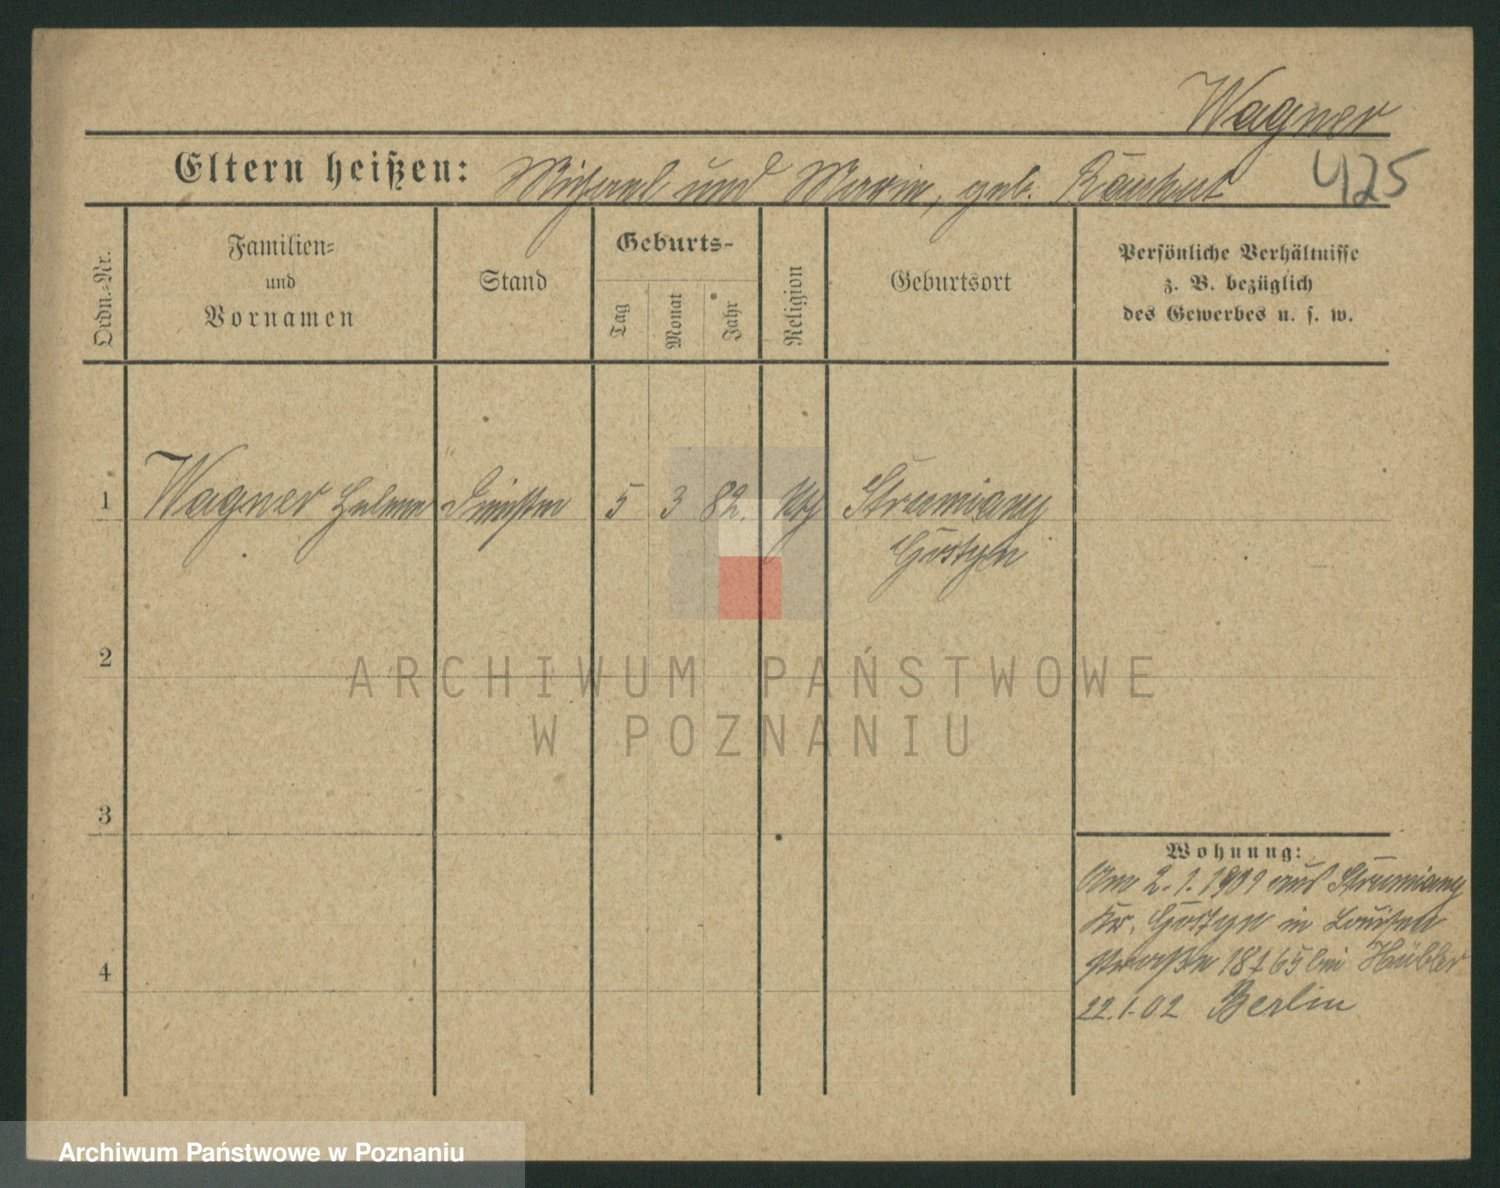 Wagner
425
Eltern heißen: Michael und Marie, geb.
Ordn.-Nr.
Familien-
und
Vornamen
Stand
Geburts-
Tag
Monat
Jahr
Religion
Geburtsort
Persönliche Verhältnisse
z. B. bezüglich
des Gewerbes u. s. w.
1 Wagner Helene 5 3 82. Strumiany
Gostyn
2
3
4
Wohnung:
Am 2.1.1901 aus Strumiany
Kr. Gostyn in Louisen
straße 18 bei Hübler
22.1.02 Berlin
ARCHIWUM PAŃSTWOWE
W POZNANIU
Archiwum Państwowe w Poznaniu